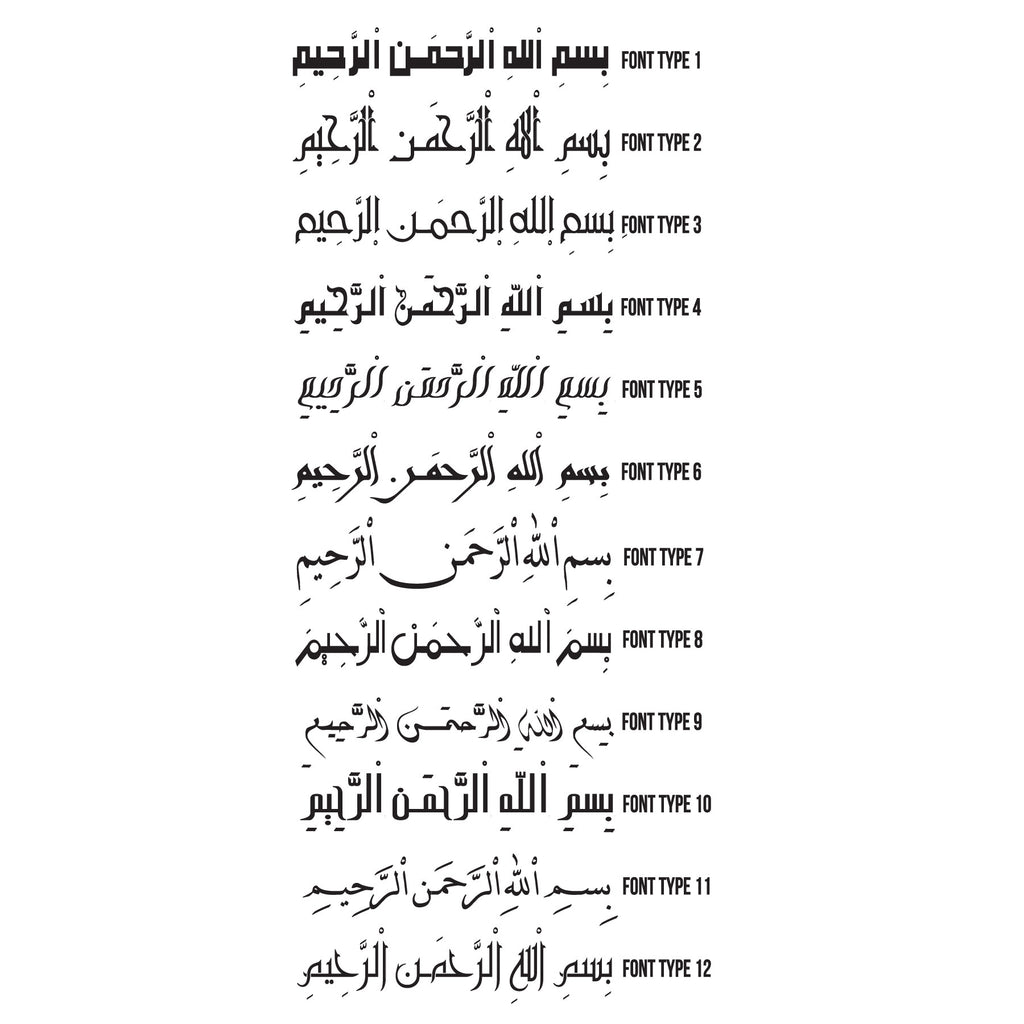 بِسْمِ اللهِ الرَّحمَنِ الرَّحِيمِ FONT TYPE 1
بِسمِ اللهِ الرَّحمَن الرَّحِيمِ FONT TYPE 2
بِسمِ اللهِ الرَّحمَن الرَّحِيمِ FONT TYPE 3
بِسمِ اللّهِ الرَّحمَن الرَّحِيمِ FONT TYPE 4
بِسمِ اللّهِ الرَّحمَن الرَّحِيمِ FONT TYPE 5
بِسمِ اللهِ الرَّحمَن الرَّحِيمِ FONT TYPE 6
بِسمِ اللهِ الرَّحمَن الرَّحِيمِ FONT TYPE 7
بِسمَ اللهِ الرَّحمَنْ الرَّحِيمَ FONT TYPE 8
بِسمِ اللّهِ الرَّحمَن الرَّحِيمِ FONT TYPE 9
بِسمِ اللّهِ الرَّحمَن الرَّحِيمِ FONT TYPE 10
بِسمِ اللهِ الرَّحمَن الرَّحِيمِ FONT TYPE 11
بِسمِ اللهِ الرَّحمَن الرَّحِيمِ FONT TYPE 12